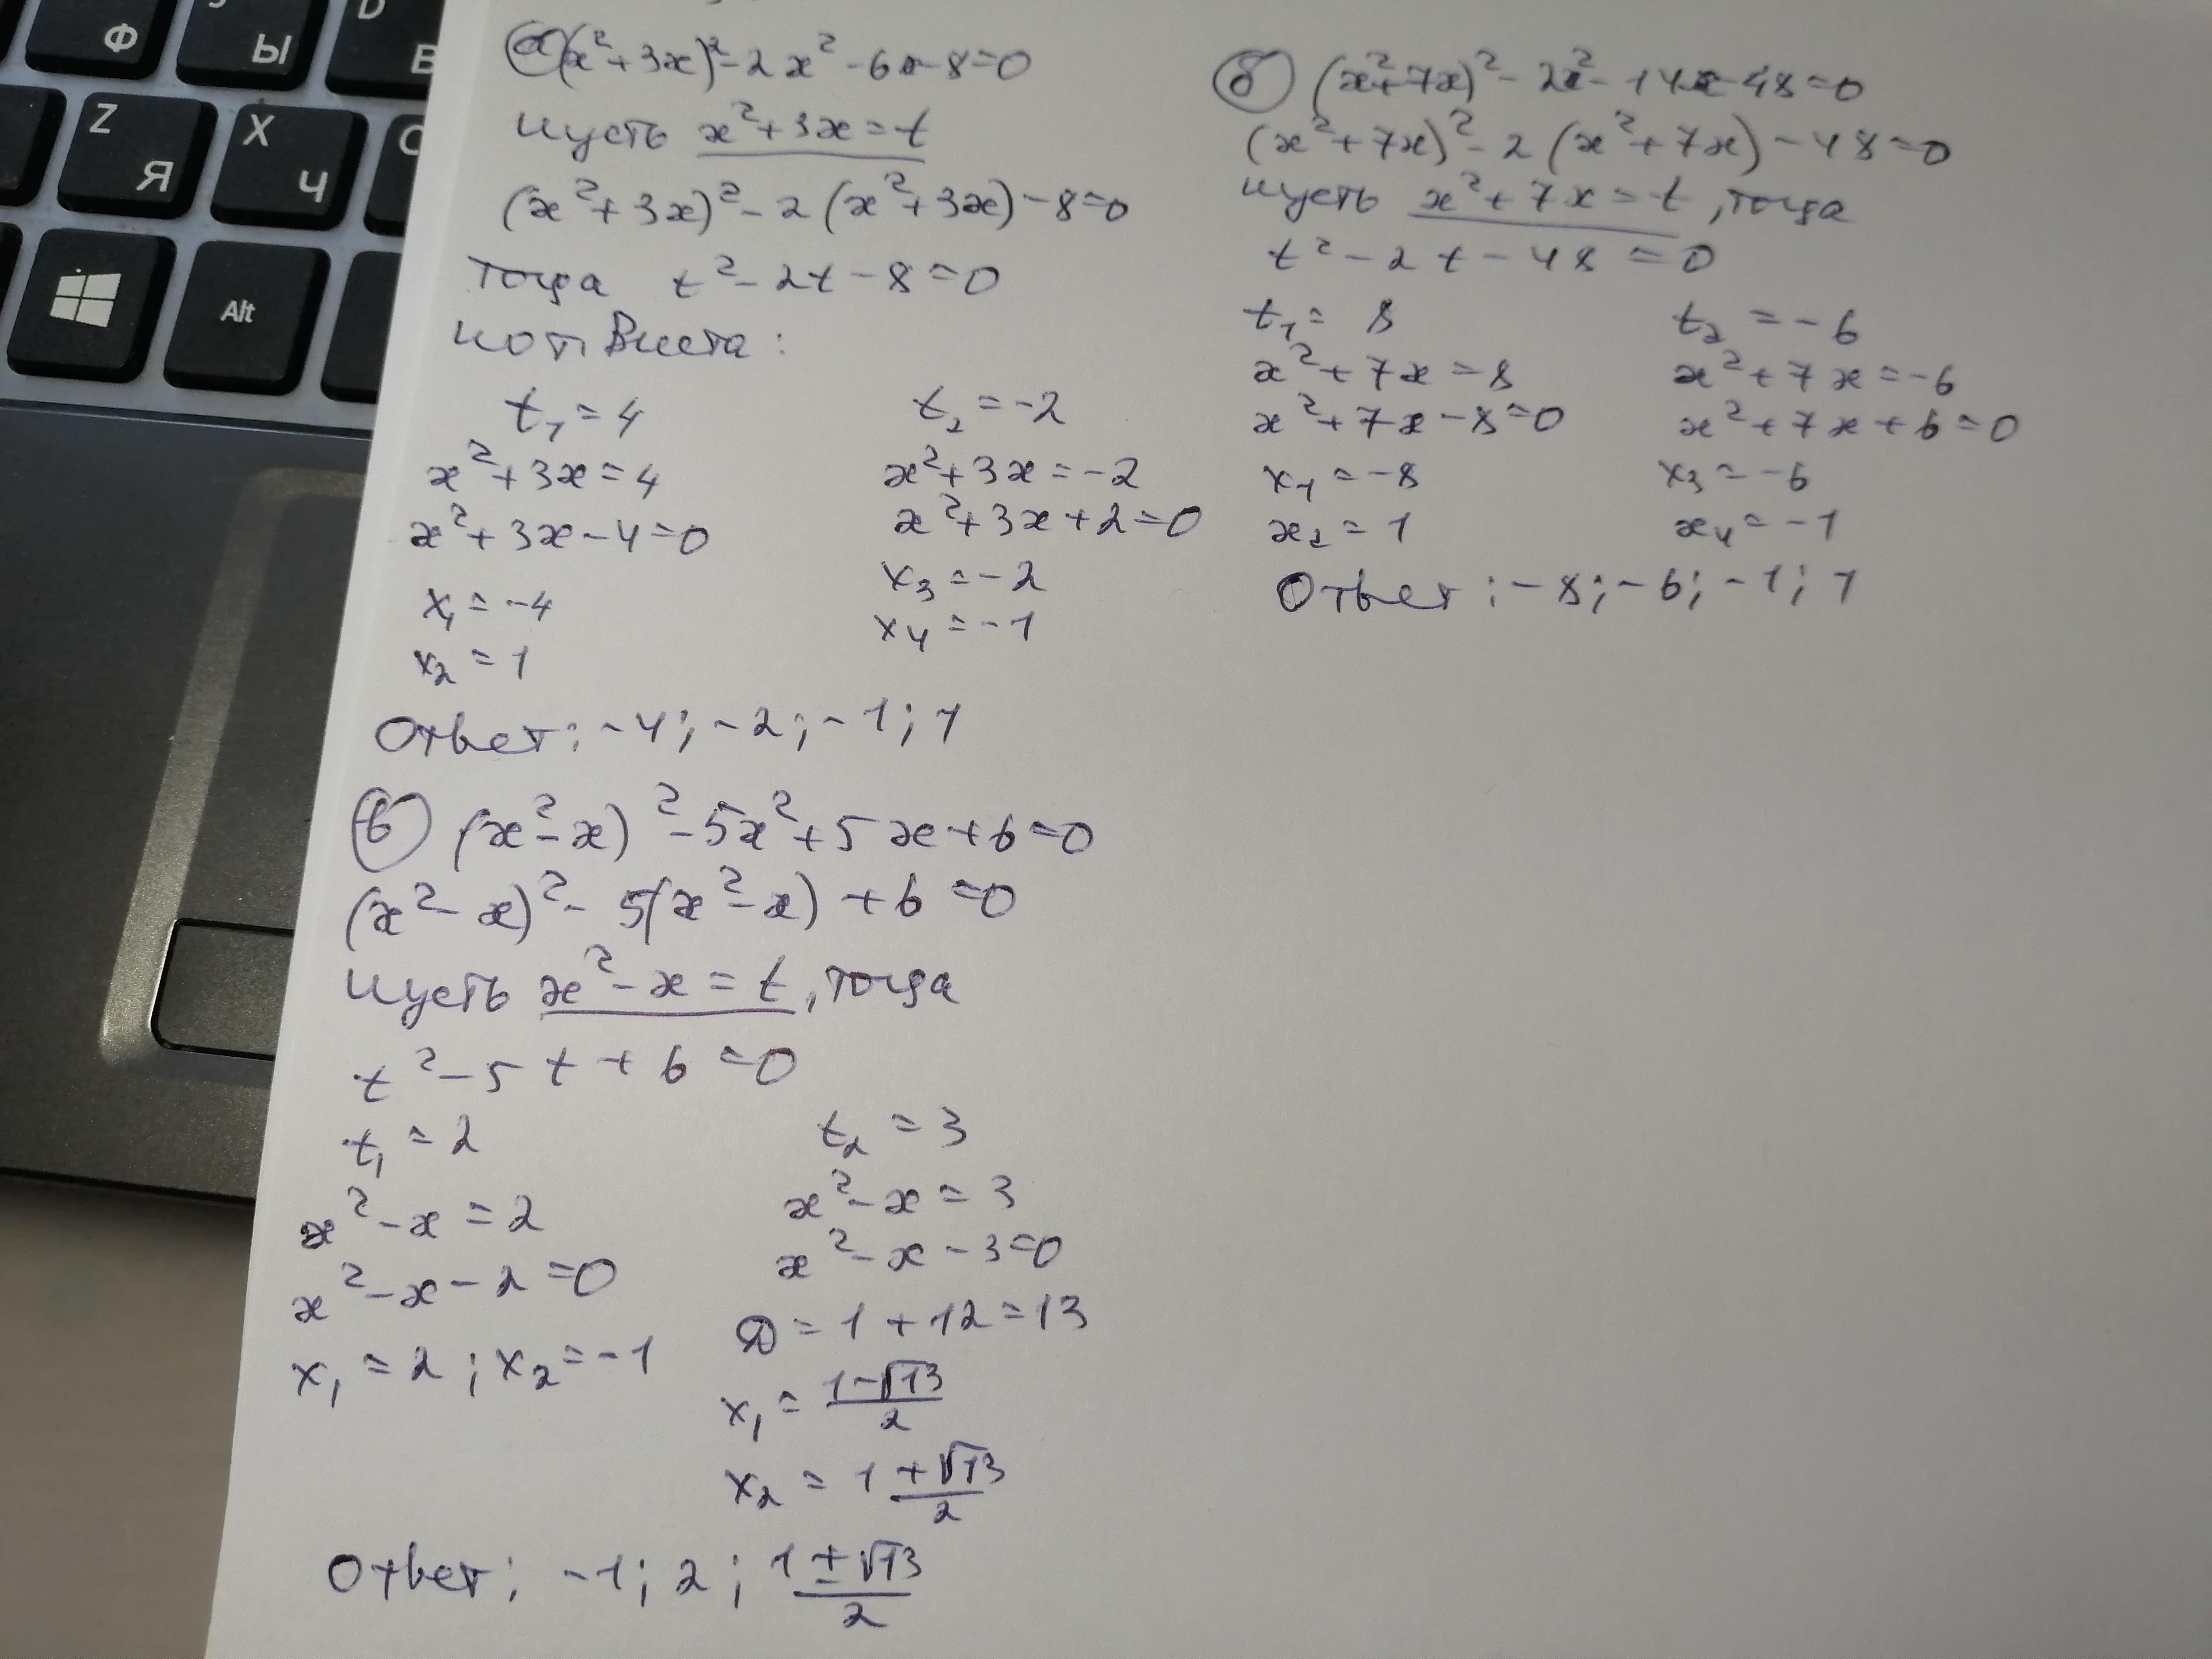 Ф
Ы
D
В
Z
Я
X
Ч
C
Alt
а) (x²+3x)²-2x²-6x-8=0
Пусть x²+3x=t
(x²+3x)²-2(x²+3x)-8=0
Тогда t²-2t-8=0
По т. Виета:
t₁=4 t₂=-2
x²+3x=4 x²+3x=-2
x²+3x-4=0 x²+3x+2=0
x₁=-4 x₃=-2
x₂=1 x₄=-1
Ответ: -4; -2; -1; 1
б) (x²+7x)²-2x²-14x-48=0
(x²+7x)²-2(x²+7x)-48=0
Пусть x²+7x=t, тогда
t²-2t-48=0
t₁=8 t₂=-6
x²+7x=8 x²+7x=-6
x²+7x-8=0 x²+7x+6=0
x₁=-8 x₃=-6
x₂=1 x₄=-1
Ответ: -8; -6; -1; 1
в) (x²-x)²-5x²+5x+6=0
(x²-x)²-5(x²-x)+6=0
Пусть x²-x=t, тогда
t²-5t+6=0
t₁=2 t₂=3
x²-x=2 x²-x=3
x²-x-2=0 x²-x-3=0
x₁=2; x₂=-1 D=1+12=13
x₁=(1-√13)/2
x₂=(1+√13)/2
Ответ: -1; 2; (1±√13)/2